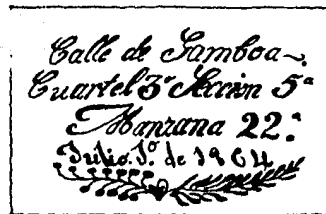 Calle de Gamboa~
Cuartel 3º Seccion 5ª
Manzana 22.ª
Julio. 1º de 1864